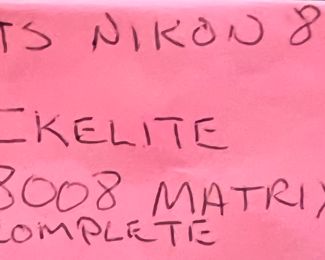 TS NIKON 8
IKELITE
8008 MATRIX
COMPLETE